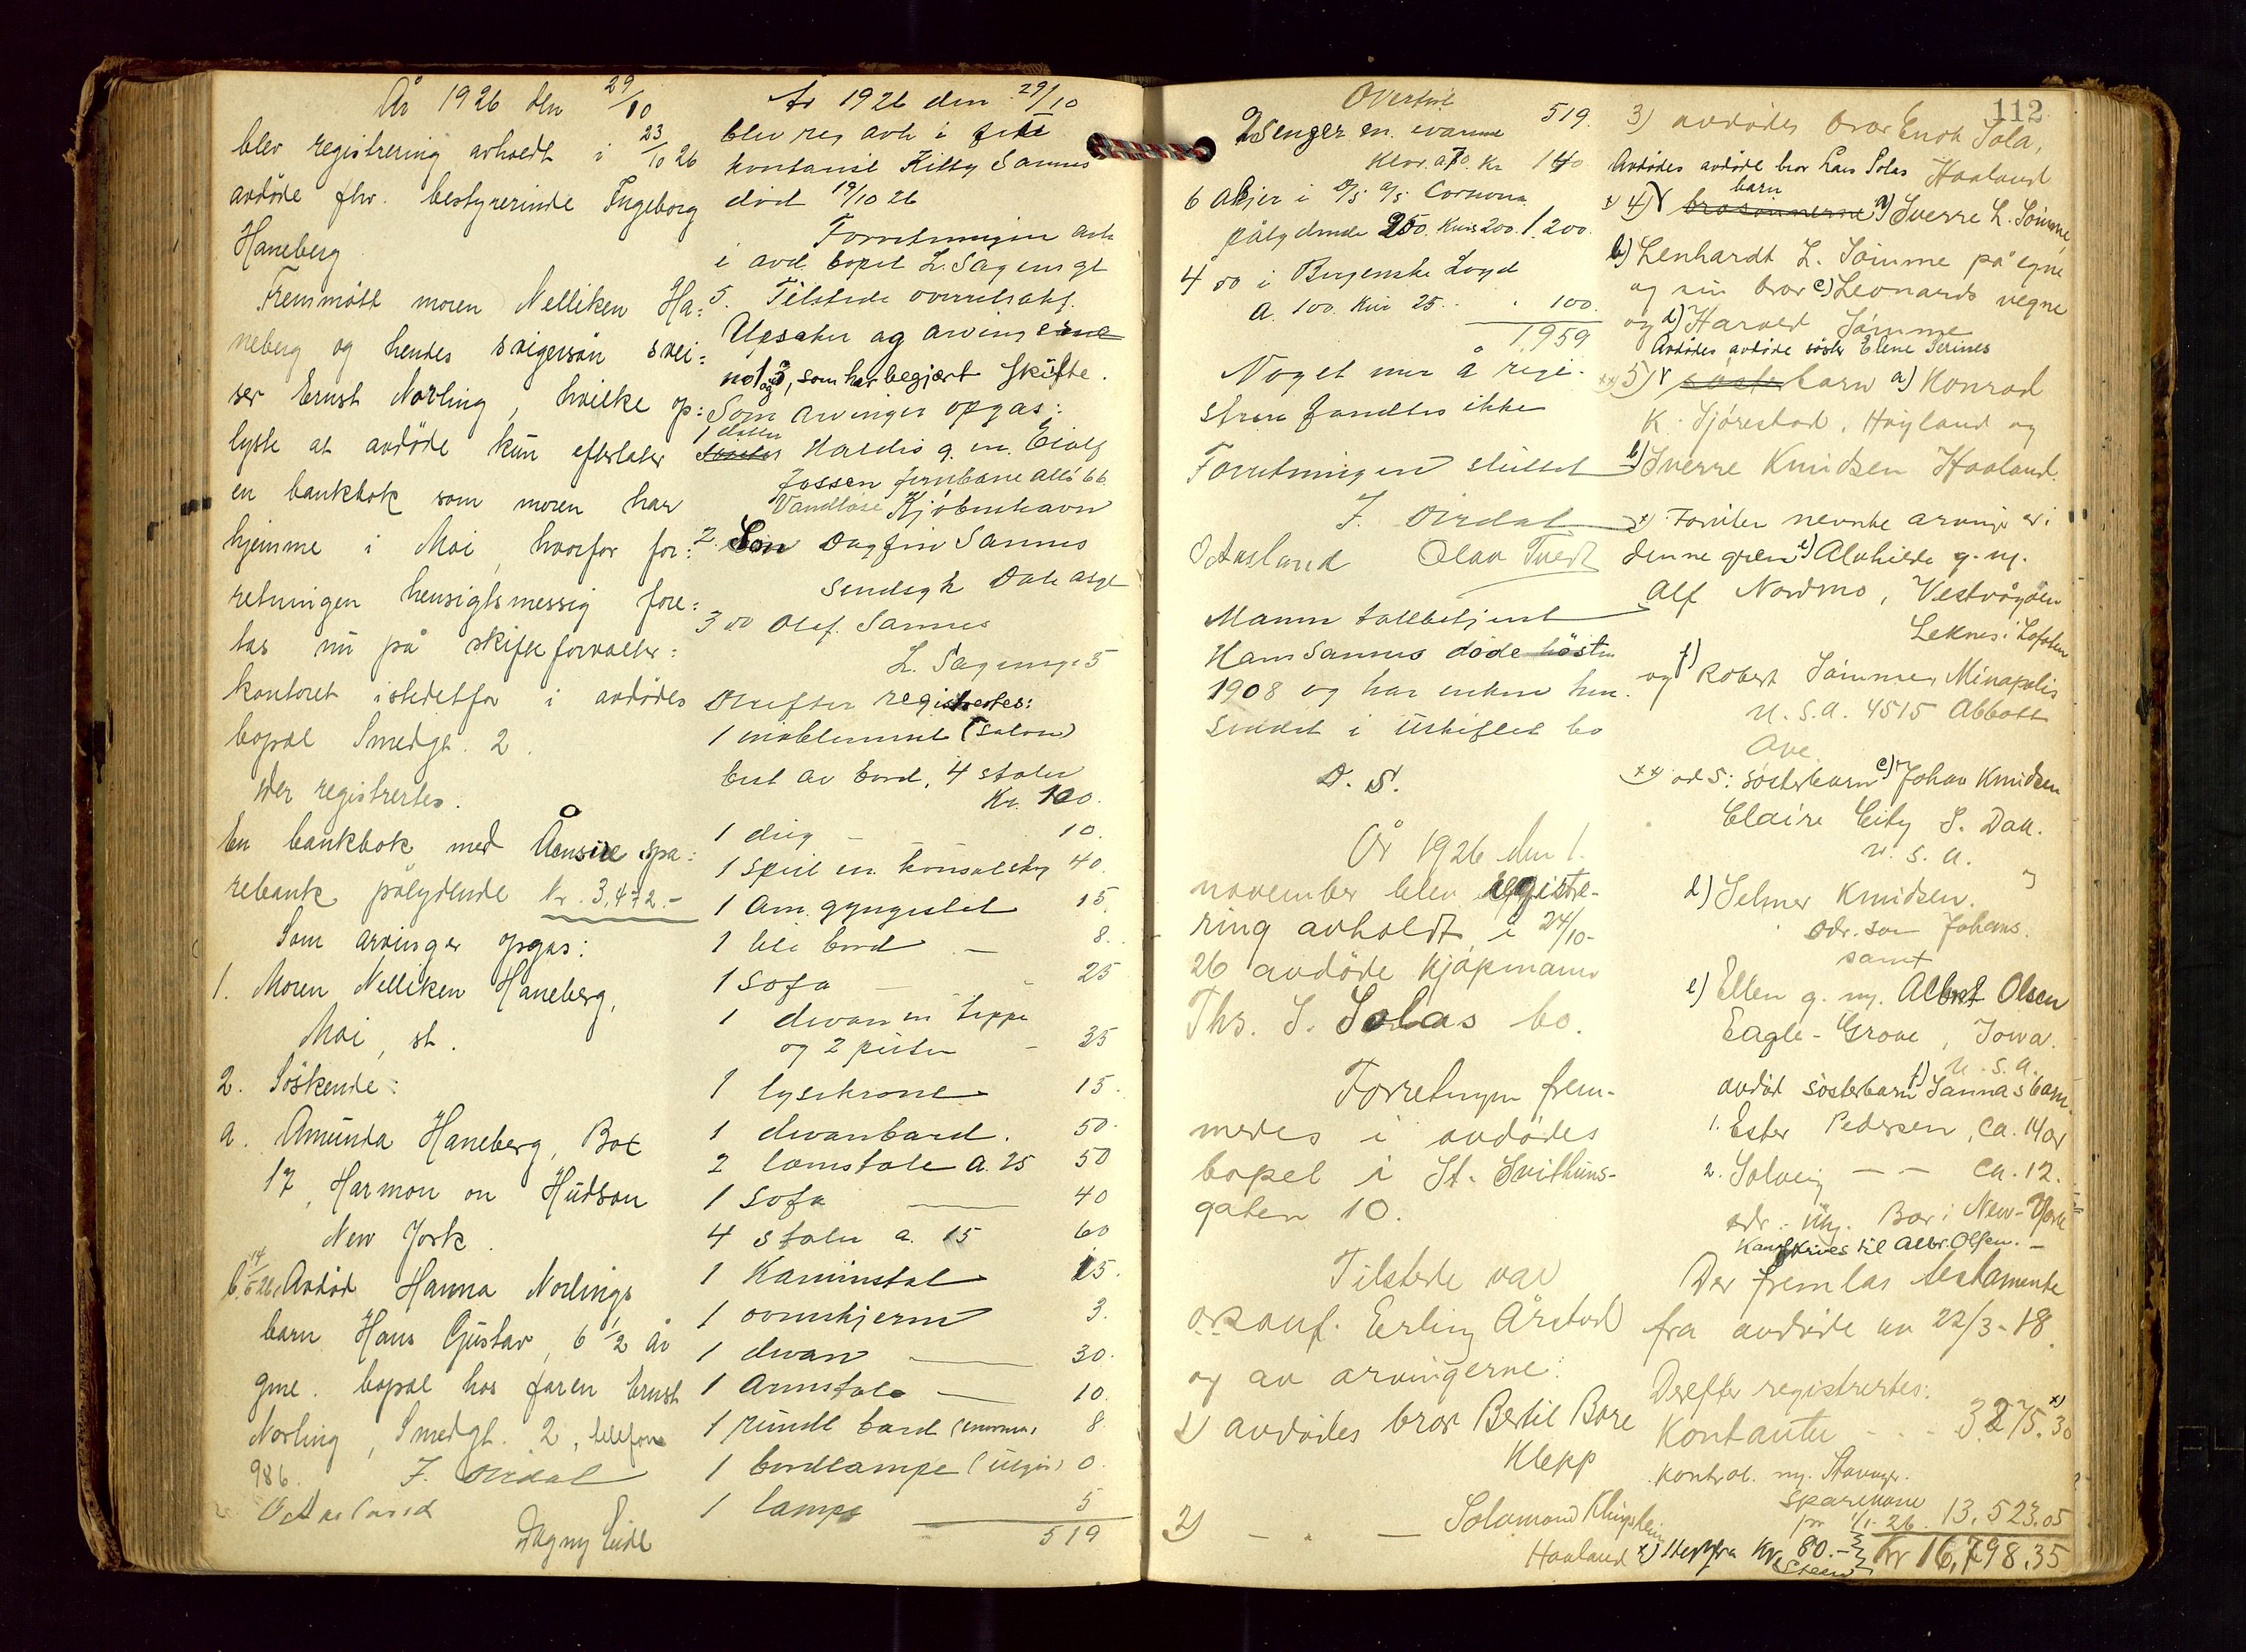 År 1926 den 29/10
blev registrering avholdt i 23/10 26
avdøde fhv. bestyrerinde Ingeborg
Haneberg
Fremmøtt moren Nelliken Ha=
neberg og hendes svigersøn svei=
ser Ernst Norling, hvilke op=
lyste at avdøde kun efterlater
en bankbok som moren har
hjemme i Moi, hvorfor for=
retningen hensigtsmessig fore=
tas nu på skifteforvalter=
kontoret istedetfor i avdødes
bopæl Smedgt. 2.
Der registrertes.
En bankbok med Åensire spa=
rebank pålydende kr. 3,472.-
Som arvinger opgas:
1. Moren Nelliken Haneberg,
Moi, st.
2. Søskende:
a. Amunda Haneberg, Box
17, Harmon on Hudson
New York.
b. 14/5 26 Avdød Hanna Norlings
barn Hans Gustav, 6 1/2 år
gml. bopæl hos faren Ernst
Norling, Smedgt. 2, telefon
986.
J. Oirdal
O Aasland
Dagny Eide
År 1926 den 29/10
blev reg avh i
Kitty Sannes
død 19/10 26
Forretningen avh
i avd. bopel L. Sagens gt
5. Tilstede overretssakf.
Upsaker og arvingerne
no 1 og 3, som har begjært skifte.
Som arvinger opgas:
1 datter Haldis g. m. Eiolf
Jossen Jernbane alle 66
Vandløse Kjøbenhavn
2. Søn Dagfin Sannes
3 do Olef. Sannes
L. Sagensg. 5
Derefter registrertes:
1 møblement (salon)
best av bord, 4 stoler
Kr. 100.
1 dug - 10.
1 speil m. konsolskap 40.
1 Am. gyngestol 15.
1 lite bord - 8.
1 sofa - 25
1 divan m teppe
og 2 puter - 35
1 lysekrone 15.
1 divanbord. 50.
2 lænstole a. 25 50
1 sofa - 40
4 stoler a. 15 60
1 Kaminstol 15.
1 ovnskjerm 3.
1 divan - 30.
1 Armstol - 10.
1 rundt bord 8
1 bordlampe 0.
1 lampe 5
519
Overført 519.
2 Senger m.
Klær. a. 70. Kr 140
6 Aksjer i D/S A/S Corona
pålydende 250. Kurs 200. 1.200.
4 do i Bergenske Loyd
a. 100. Kurs 25. 100.
1.959
Noget mer å regi-
strere fandtes ikke
Forretningen sluttet
J. Oirdal
O Aasland Olav Tvedt
Mannen tollbetjent
Hans Sannes døde høsten
1908 og har enken hen
siddet i uskiftet bo
D. S.
År 1926 den 1.
november blev registre-
ring avholdt i 24/10-
26 avdøde kjøpmann
Ths. S. Solas bo.
Forretnigen frem-
medes i avdødes
bopel i St. Svithuns-
gaten 10.
Tilstede var
o.r.sakf. Erling Årstad
og av arvingerne:
1) avdødes bror Bertil Bore
Klepp
2) - " - Solamond Klingsheim
Haaland
112
3) avdødes bror Enok Sola,
Haaland
Avdødes avdøde bror Lars Solas
x) 4) brorsønnerne barn a) Sverre L. Sømme,
b) Lenhardt L. Sømme på egne
og sin bror c) Leonards vegne
og d) Harald Sømme
Avdødes avdøde søster Elene Serines
xx) 5) søster barn a) Konrad
K. Sjørestad, Høyland og
b) Sverre Knudsen Haaland.
x) Foruten nevnte arvinger er i
denne gren e) Alvhilde g. m.
Alf Nordmo, Vestvågøen
Leknes i Lofoten
og f) Robert Sømme, Minapolis
U. S. A. 4515 Abbott
Ave.
xx) ad 5: søsterbarn c) Johan Knudsen
Claire City S. Dak.
U. S. A.
d) Selmer Knudsen.
adr. som Johans.
samt
e) Ellen g. m. Albert Olsen
Eagle-Grove, Iowa.
U. S. A.
avdød søsterbarn f) Sannas barn
1. Ester Pedersen, ca. 14 år
2. Solveig - - ca. 12.
adr. Bor i New-York
Kan skrives til Albr. Olsen. -
Der fremlas testamente
fra avdøde av 22/3-18
Derefter registrertes:
Kontanter - - - 3.275.30 x)
Kontrab. m. Stavanger.
sparekasse
pr 1/1-26 13.523.05
Kr 16,798.35
x) Herfra kr. 80.-
Steen